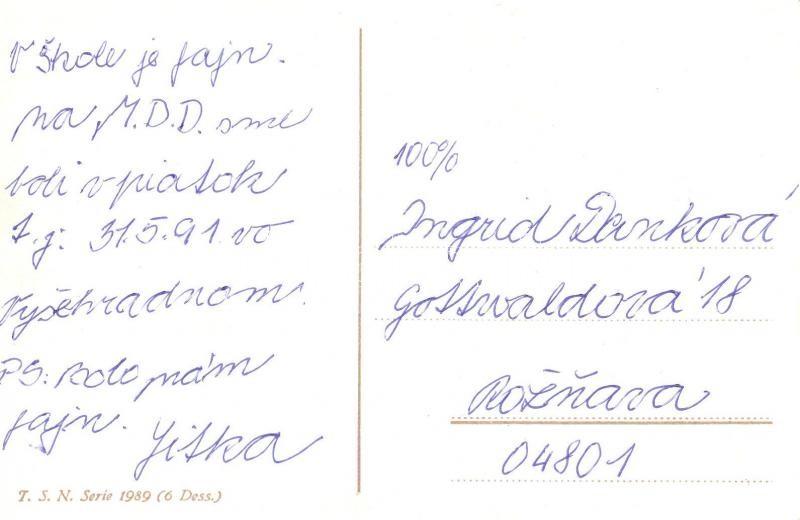 V škole je fajn.
na M.D.D. sme
boli v piatok
t.j. 31.5.91 vo
Vyšehradnom.
PS: bolo nám
fajn.
Jitka
T. S. N. Serie 1989 (6 Dess.)
100%
Ingrid Danková
Gottwaldová 18
Rožňava
04801